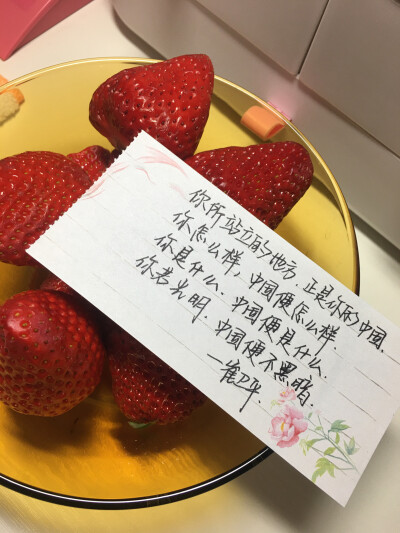 你所站立的地方，正是你的中国.
你怎么样，中国便怎么样.
你是什么，中国便是什么.
你若光明，中国便不黑暗.
—崔卫平.